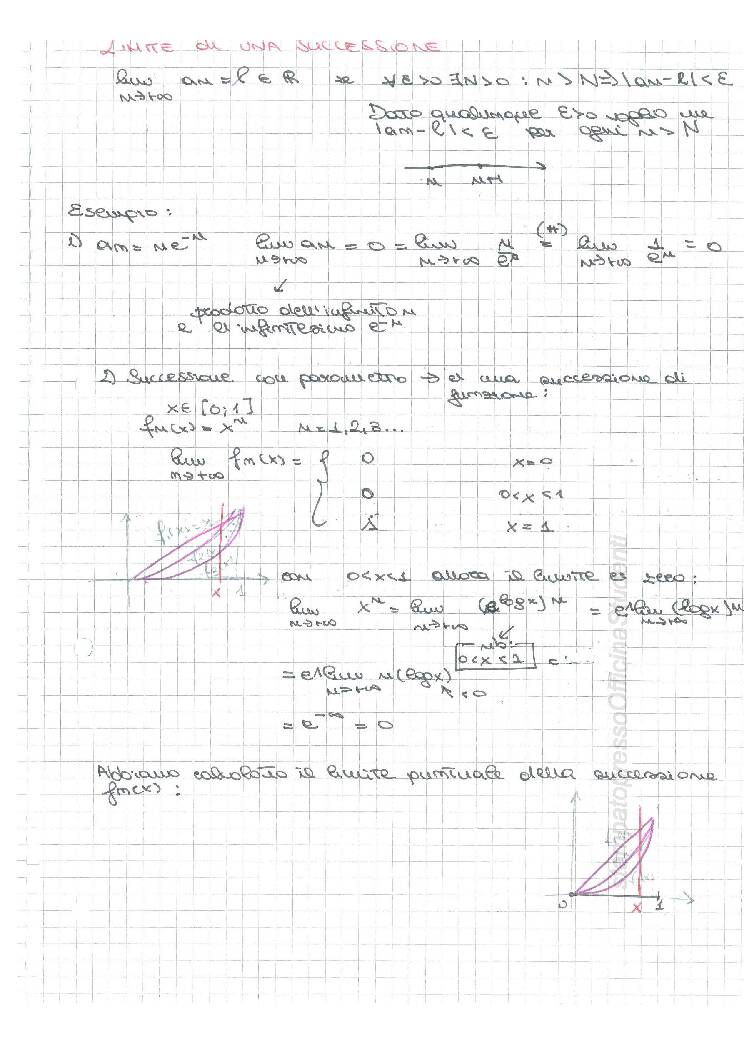 LIMITE di UNA SUCCESSIONE
lim an = l ∈ R se ∀ε>0 ∃N>0 : n > N ⇒ |an - l| < ε
n→+∞
Dato qualunque ε>0
|an - l| < ε per ogni n > N
n n+1
Esempio:
1) an = ne^-n lim an = 0 = lim n/e^n (H)= lim 1/e^n = 0
n→+∞ n→+∞ n→+∞
↙
prodotto dell'infinito n
e di infinitesimo e^-n
2) Successione con parametro → è una successione di
funzione:
x ∈ [0;1]
fn(x) = x^n n = 1,2,3...
lim fn(x) = { 0 x = 0
n→+∞
0 0<x<1
1 x = 1
x 1
con 0<x<1 allora il limite è zero:
lim x^n = lim (e^logx)^n = e^lim (logx)n
n→+∞ n→+∞ n→+∞
0<x<1 = ...
= e^lim n(logx)
n→+∞ <0
= e^-∞ = 0
Abbiamo calcolato il limite puntuale della successione
fn(x) :
0 x 1
StampatopressoOfficinaStudenti